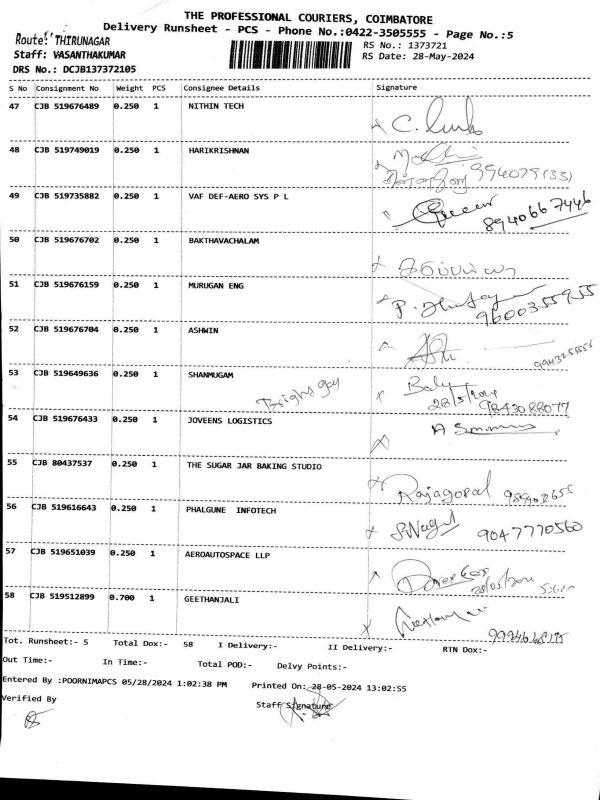 THE PROFESSIONAL COURIERS, COIMBATORE
Delivery Runsheet - PCS - Phone No.:0422-3505555 - Page No.:5
Route: THIRUNAGAR
RS No.: 1373721
Staff: VASANTHAKUMAR
RS Date: 28-May-2024
DRS No.: DCJB137372105
S No Consignment No Weight PCS Consignee Details Signature
47 CJB 519676489 0.250 1 NITHIN TECH
48 CJB 519749019 0.250 1 HARIKRISHNAN
49 CJB 519735882 0.250 1 VAF DEF-AERO SYS P L
8940667446
50 CJB 519676702 0.250 1 BAKTHAVACHALAM
51 CJB 519676159 0.250 1 MURUGAN ENG
9600355955
52 CJB 519676704 0.250 1 ASHWIN
53 CJB 519649636 0.250 1 SHANMUGAM
28/5/2024
9843088077
54 CJB 519676433 0.250 1 JOVEENS LOGISTICS
55 CJB 80437537 0.250 1 THE SUGAR JAR BAKING STUDIO
Rajagopal
56 CJB 519616643 0.250 1 PHALGUNE INFOTECH
S.Nagul 9047770560
57 CJB 519651039 0.250 1 AEROAUTOSPACE LLP
58 CJB 519512899 0.700 1 GEETHANJALI
Tot. Runsheet:- 5 Total Dox:- 58 I Delivery:- II Delivery:- RTN Dox:-
Out Time:- In Time:- Total POD:- Delvy Points:-
Entered By :POORNIMAPCS 05/28/2024 1:02:38 PM Printed On: 28-05-2024 13:02:55
Verified By Staff Signature